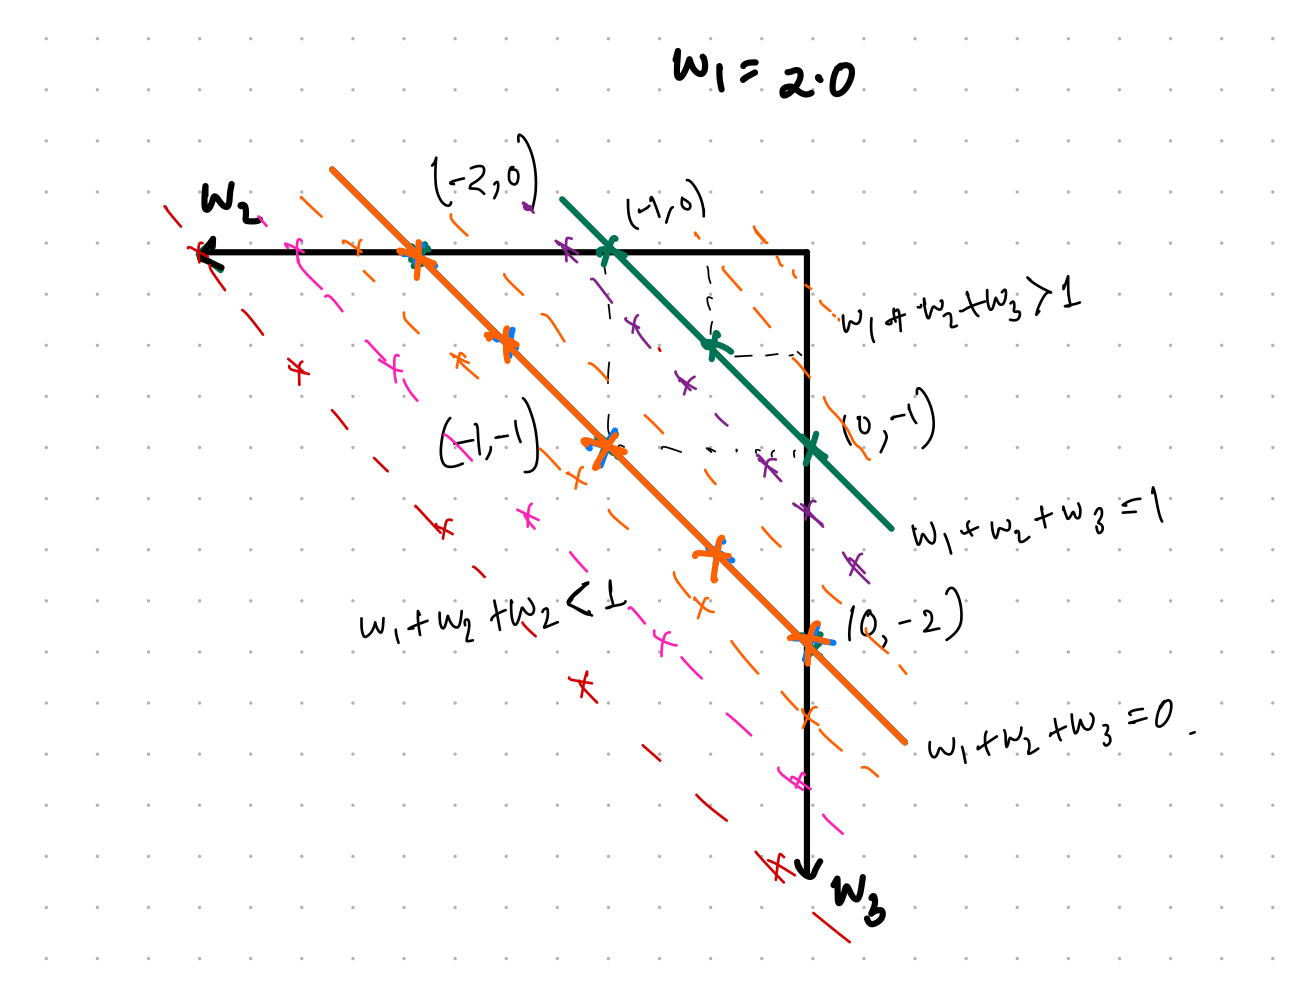 w₁ = 2.0
(-2,0)
w₂
(-1,0)
w₁ + w₂ + w₃ > 1
(0, -1)
(-1,-1)
w₁ + w₂ + w₃ = 1
w₁ + w₂ + w₂ < 1
(0, -2)
w₁ + w₂ + w₃ = 0.
w₃